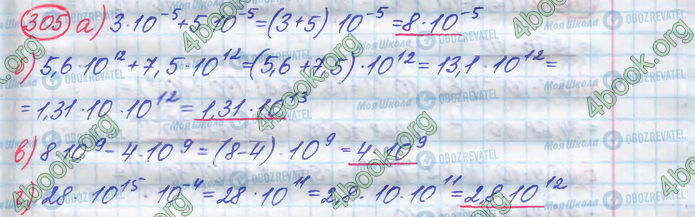 305 а) 3·10⁻⁵+5·10⁻⁵=(3+5)·10⁻⁵=8·10⁻⁵
б) 5,6·10¹²+7,5·10¹²=(5,6+7,5)·10¹²=13,1·10¹²=
=1,31·10·10¹²=1,31·10¹³
в) 8·10⁹-4·10⁹=(8-4)·10⁹=4·10⁹
28·10¹⁵·10⁻⁴=28·10¹¹=2,8·10·10¹¹=2,8·10¹²